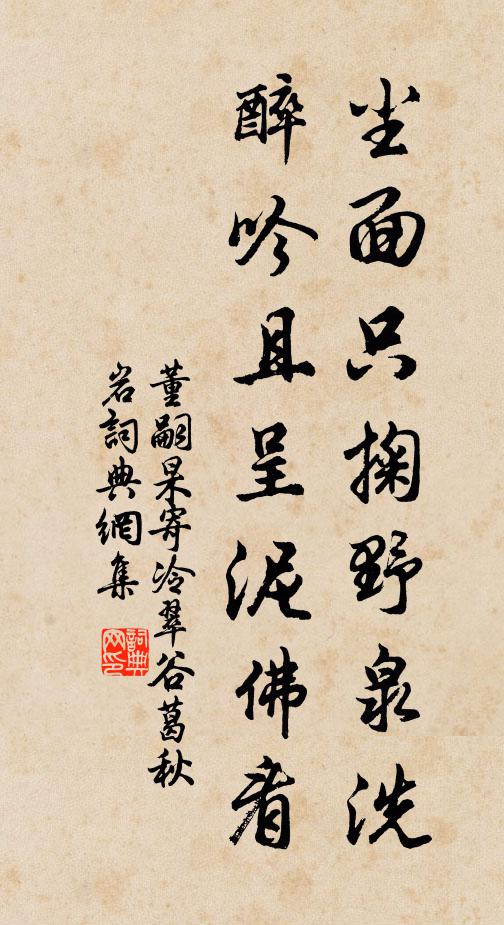 尘面只掬野泉洗
醉吟且呈泥佛看
董嗣杲寄冷翠谷葛秋
岩詞典網集
詞典网印